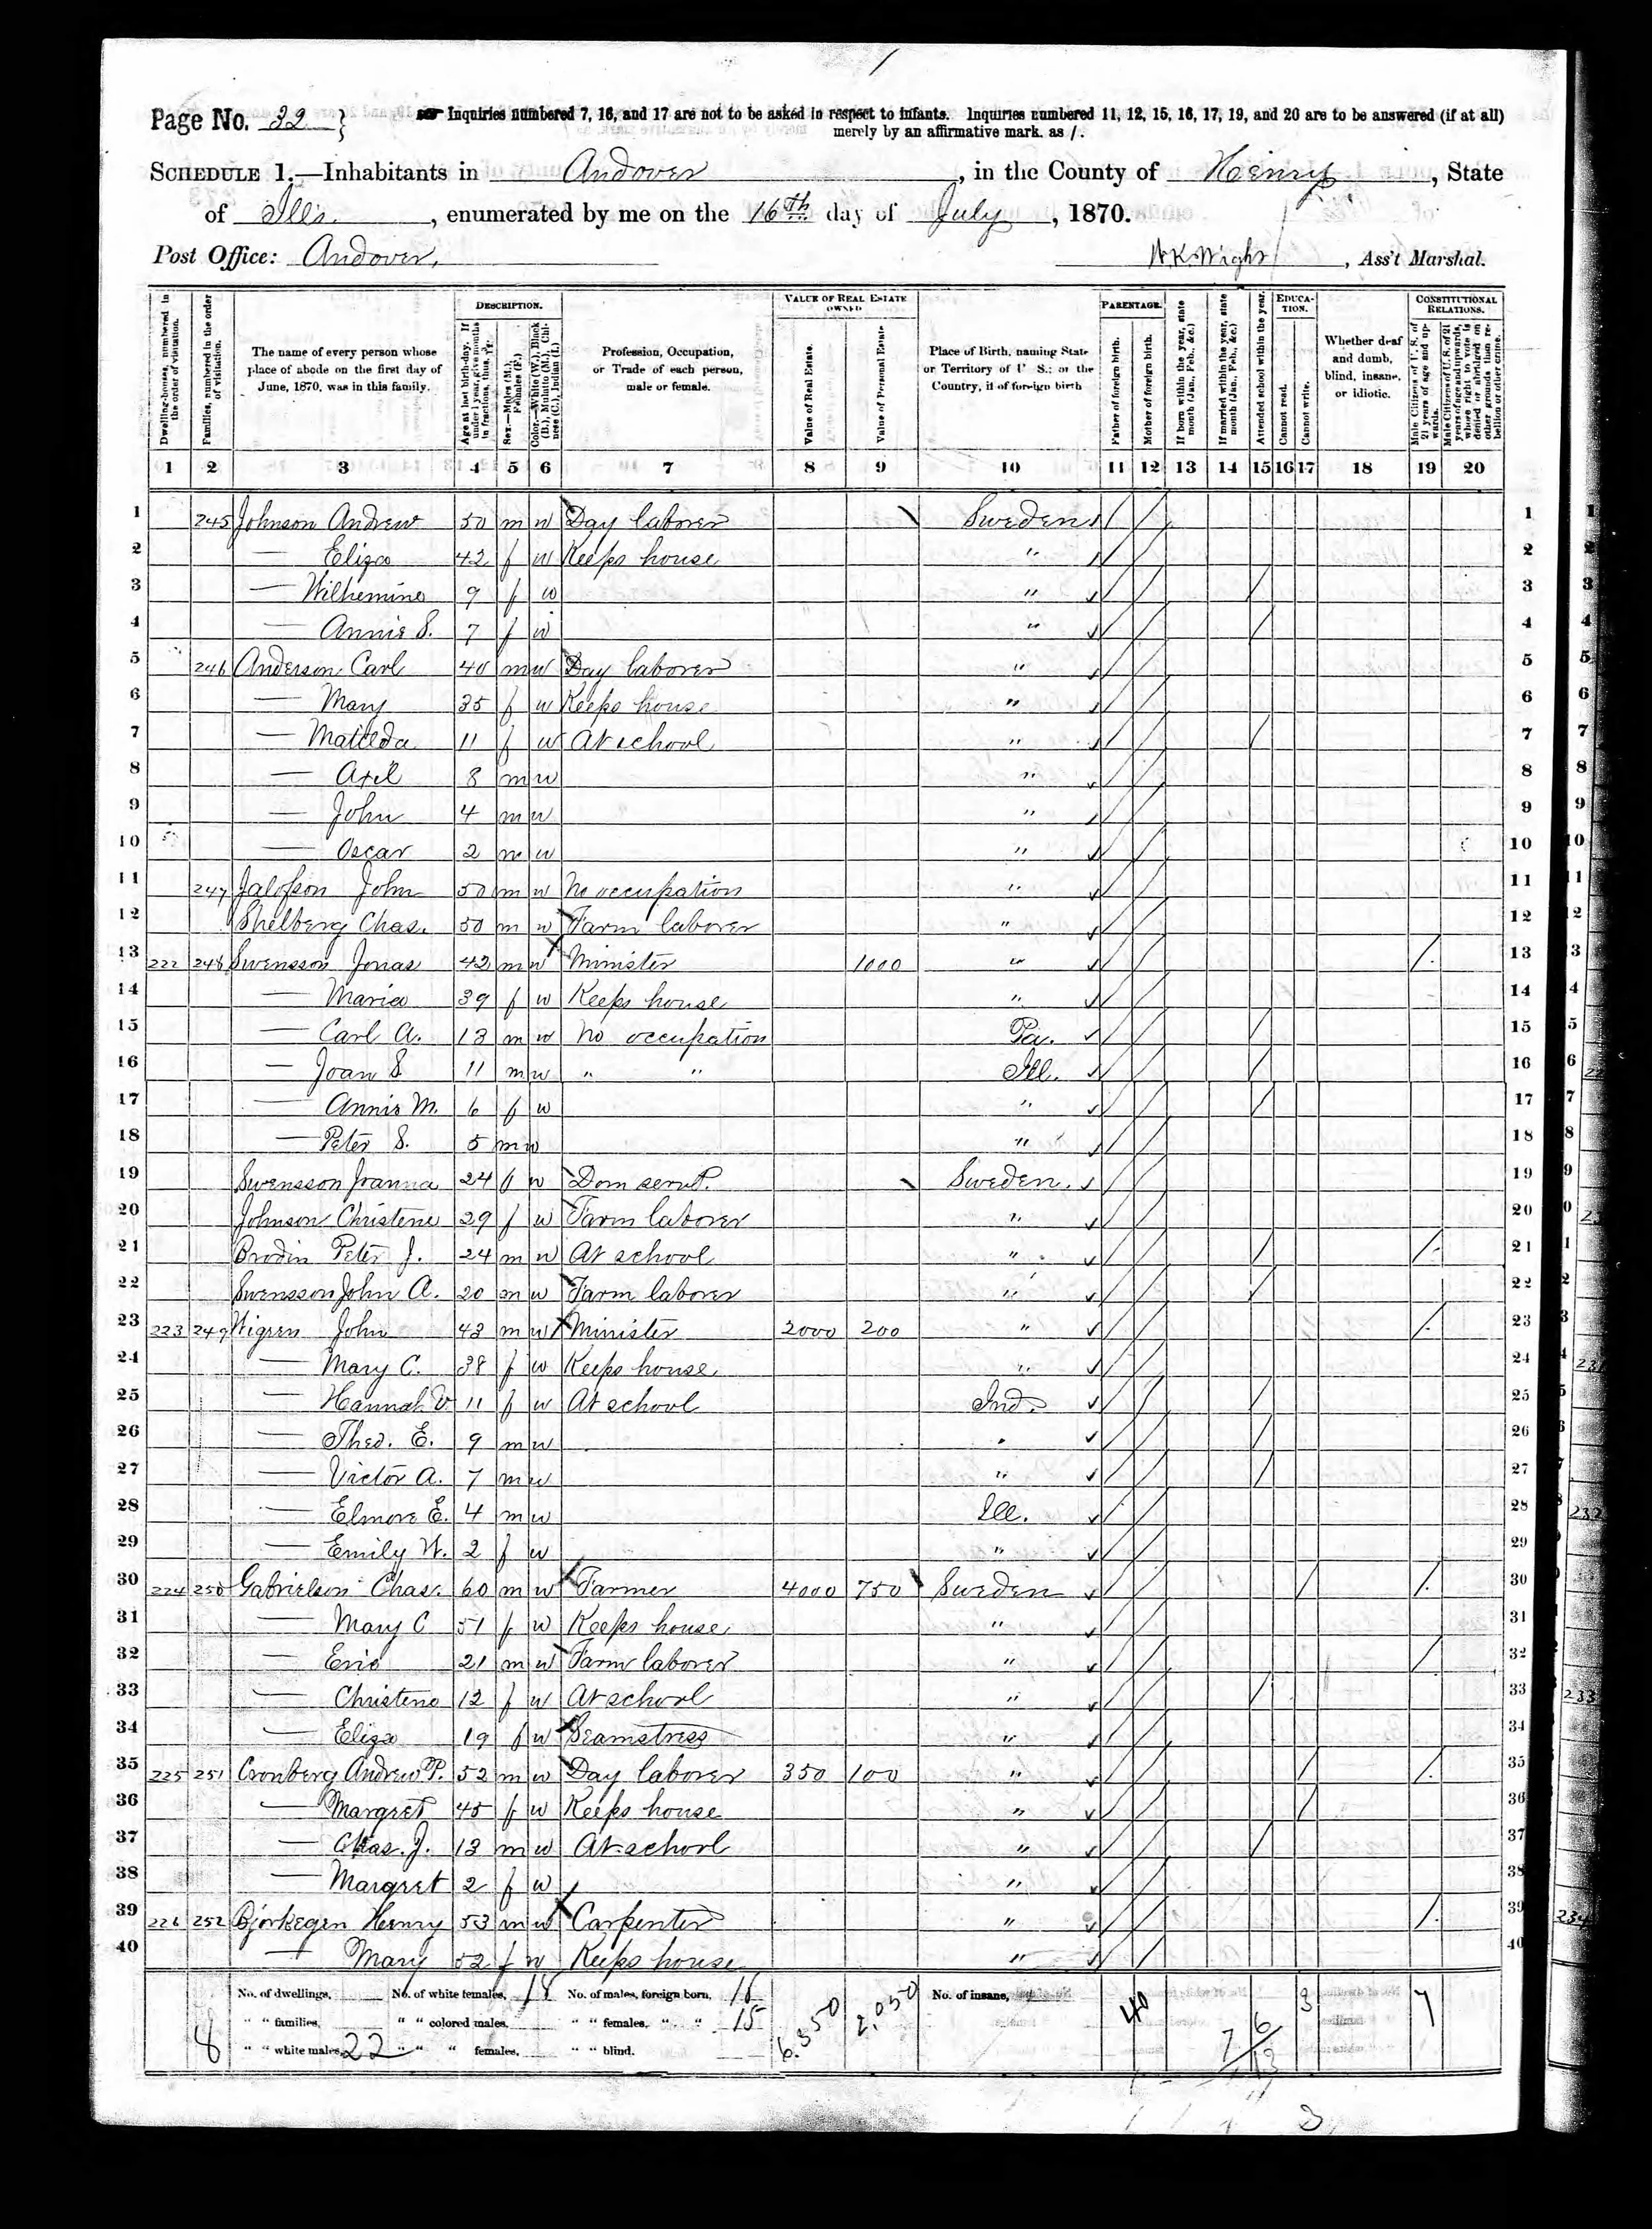 Page No. 32 } Inquiries numbered 7, 16, and 17 are not to be asked in respect to infants. Inquiries numbered 11, 12, 15, 16, 17, 19, and 20 are to be answered (if at all)
merely by an affirmative mark, as /.
SCHEDULE 1.—Inhabitants in Andover, in the County of Henry, State
of Ills., enumerated by me on the 16th day of July, 1870.
Post Office: Andover. , Ass't Marshal.
DESCRIPTION. VALUE OF REAL ESTATE OWNED PARENTAGE. EDUCATION. CONSTITUTIONAL RELATIONS.
Dwelling-houses, numbered in the order of visitation.
Families, numbered in the order of visitation.
The name of every person whose place of abode on the first day of June, 1870, was in this family.
Age at last birth-day. If under 1 year, give months in fractions, thus, 3/12.
Sex.—Males (M.), Females (F.)
Color.—White (W.), Black (B.), Mulatto (M.), Chinese (C.), Indian (I.)
Profession, Occupation, or Trade of each person, male or female.
Value of Real Estate.
Value of Personal Estate
Place of Birth, naming State or Territory of U S.; or the Country, if of foreign birth
Father of foreign birth.
Mother of foreign birth.
If born within the year, state month (Jan., Feb., &c.)
If married within the year, state month (Jan., Feb., &c.)
Attended school within the year.
Cannot read.
Cannot write.
Whether deaf and dumb, blind, insane, or idiotic.
Male Citizens of U. S. of 21 years of age and upwards.
Male Citizens of U. S. of 21 years of age and upwards, whose right to vote is denied or abridged on other grounds than rebellion or other crime.
1 2 3 4 5 6 7 8 9 10 11 12 13 14 15 16 17 18 19 20
1 245 Johnson Andrew 50 m w Day laborer Sweden / / 1
2 — Eliza 42 f w Keeps house " / / 2
3 — Wilhemina 9 f w " / / / 3
4 — Annie S. 7 f w " / / / 4
5 246 Anderson Carl 40 m w Day laborer " / / 5
6 — Mary 35 f w Keeps house " / / 6
7 — Matilda 11 f w At school " / / / 7
8 — Axel 8 m w " / / 8
9 — John 4 m w " / / 9
10 — Oscar 2 m w " / / 10
11 247 John 50 m w No occupation " / / 11
12 Shelberg Chas. 50 m w Farm laborer " / / 12
13 222 248 Swensson Jonas 42 m w Minister 1000 " / / / 13
14 — Maria 39 f w Keeps house " / / 14
15 — Carl A. 13 m w No occupation Pa. / / / 15
16 — Joan S 11 m w " " Ill. / / / 16
17 — Annie M. 6 f w " / / / 17
18 — Peter S. 5 m w " / / 18
19 Swensson Joanna 24 f w Dom servt. Sweden. / / 19
20 Johnson Christene 29 f w Farm laborer " / / 20
21 Brodin Peter J. 24 m w At school " / / / / 21
22 Swensson John A. 20 m w Farm laborer " / / / 22
23 223 249 Wigren John 43 m w Minister 2000 200 " / / / 23
24 — Mary C. 38 f w Keeps house " / / 24
25 — Hannah V 11 f w At school Ind. / / / 25
26 — Theo. E. 9 m w " / / / 26
27 — Victor A. 7 m w " / / / 27
28 — Elmore E. 4 m w Ill. / / 28
29 — Emily W. 2 f w " / / 29
30 224 250 Gabrielson Chas. 60 m w Farmer 4000 750 Sweden / / / / 30
31 — Mary C 51 f w Keeps house " / / 31
32 — Eric 21 m w Farm laborer " / / / 32
33 — Christena 12 f w At school " / / / 33
34 — Eliza 19 f w Seamstress " / / 34
35 225 251 Cronberg Andrew P. 52 m w Day laborer 350 100 " / / / / 35
36 — Margret 45 f w Keeps house " / / / 36
37 — Chas. J. 13 m w At school " / / / 37
38 — Margret 2 f w " / / 38
39 226 252 Bjorkegen Henry 53 m w Carpenter " / / / 39
40 — Mary 52 f w Keeps house " / / 40
No. of dwellings, No. of white females, 18 No. of males, foreign born, 16 6.350 2.050 No. of insane, 40 3 7
" " families, " " colored males, " " females, " " 15
8 " " white males, 22 " " " females, " " blind. 7/6/13
3